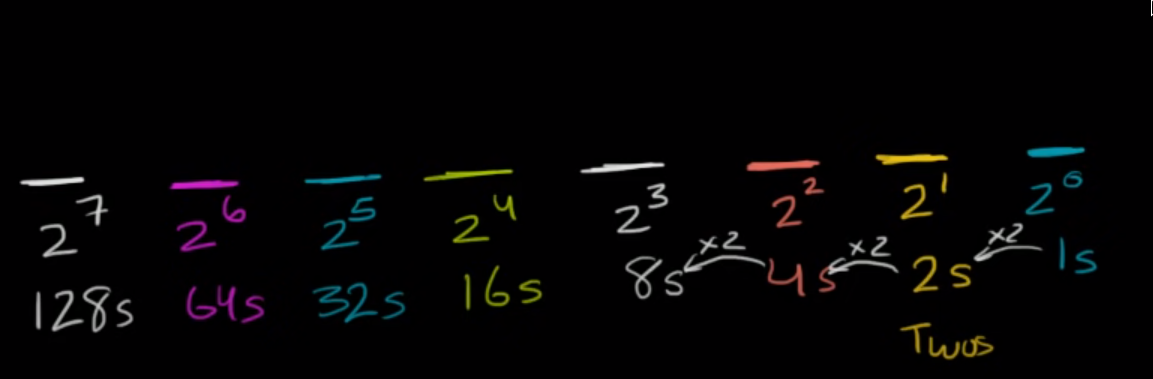 2⁷ 2⁶ 2⁵ 2⁴ 2³ 2² 2¹ 2⁰
x2 x2 x2
128s 64s 32s 16s 8s 4s 2s 1s
Twos